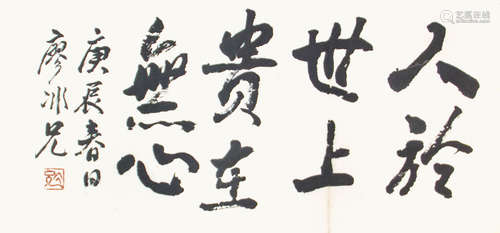 人於
世上
貴在
無心
庚辰春日
廖冰兄